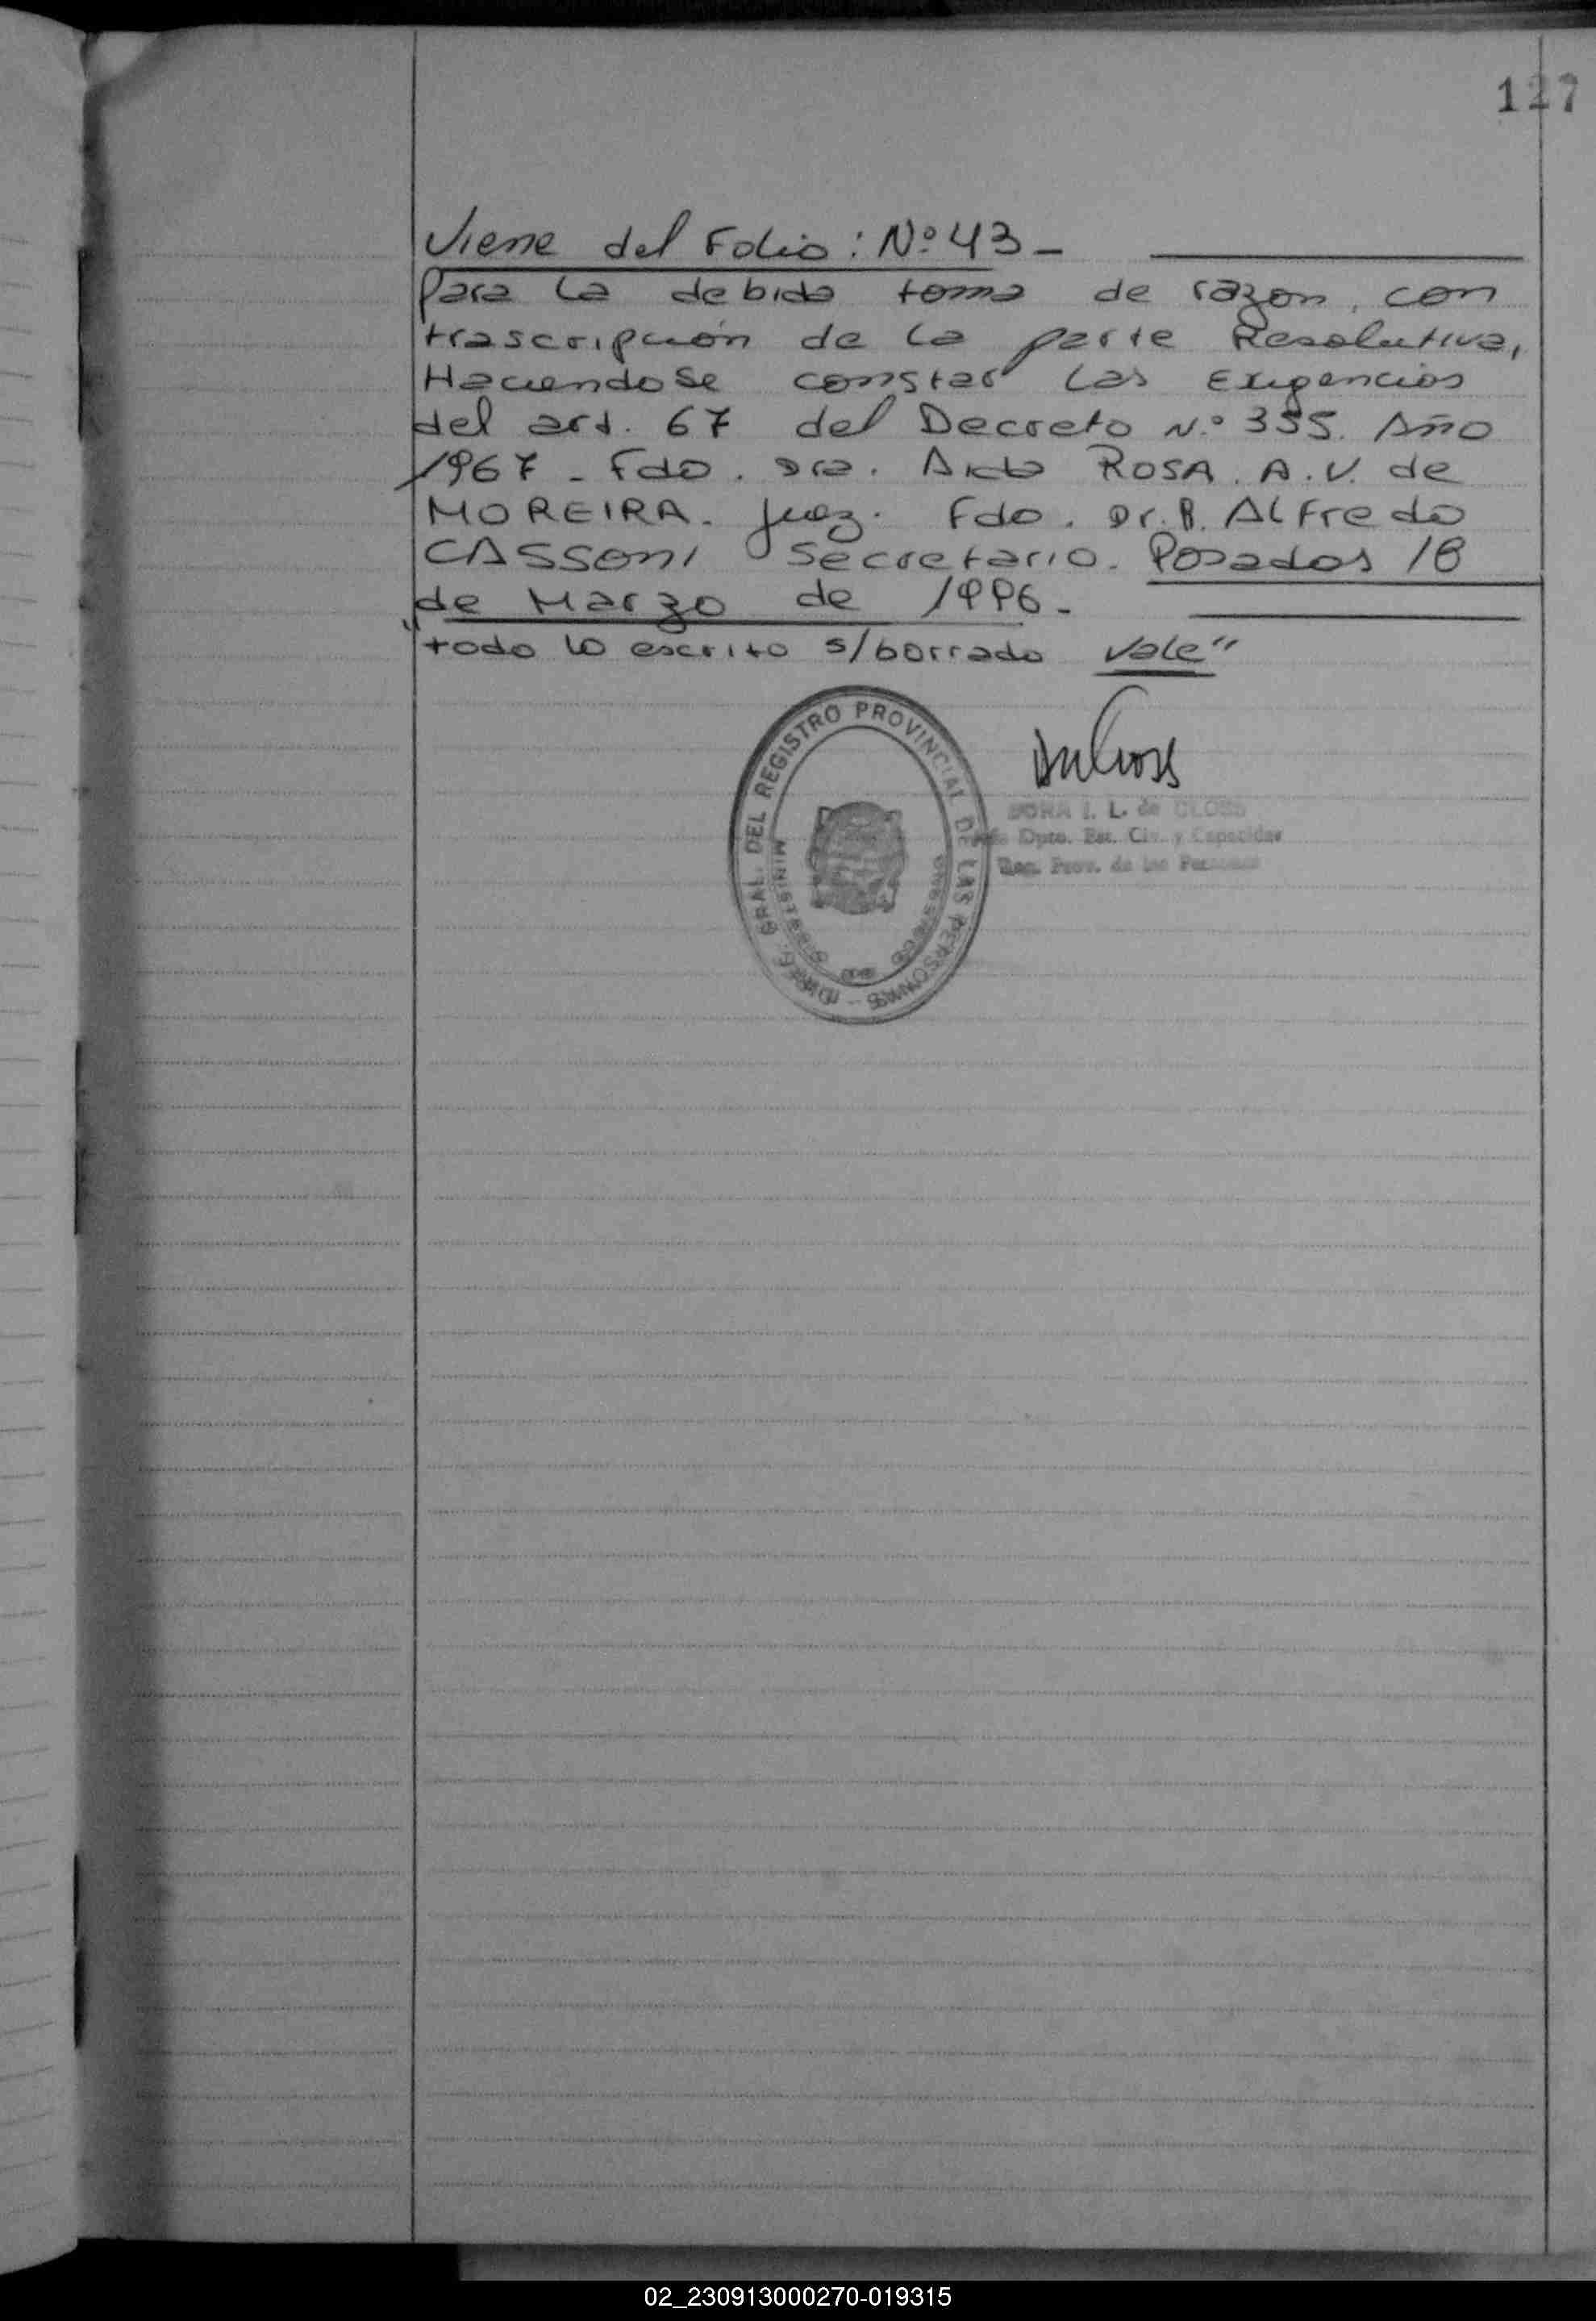 127
Viene del Folio: Nº 43 _
Para la debida toma de razon, con
trascripción de la parte Resolutiva,
Haciendose constar las Exigencias
del art. 67 del Decreto N.º 355. Año
1967 - Fdo. Dra. Aida ROSA. A.V. de
MOREIRA. Juez. Fdo. Dr. B. ALFredo
CASSONI Secretario. Posadas 18
de Marzo de 1996 -
"todo lo escrito s/borrado vale"
GRAL. DEL REGISTRO PROVINCIAL DE LAS PERSONAS
I. L. de CLOSS
Dpto. Est. Civ. y Capacidad
Reg. Prov. de las Personas
02_230913000270-019315